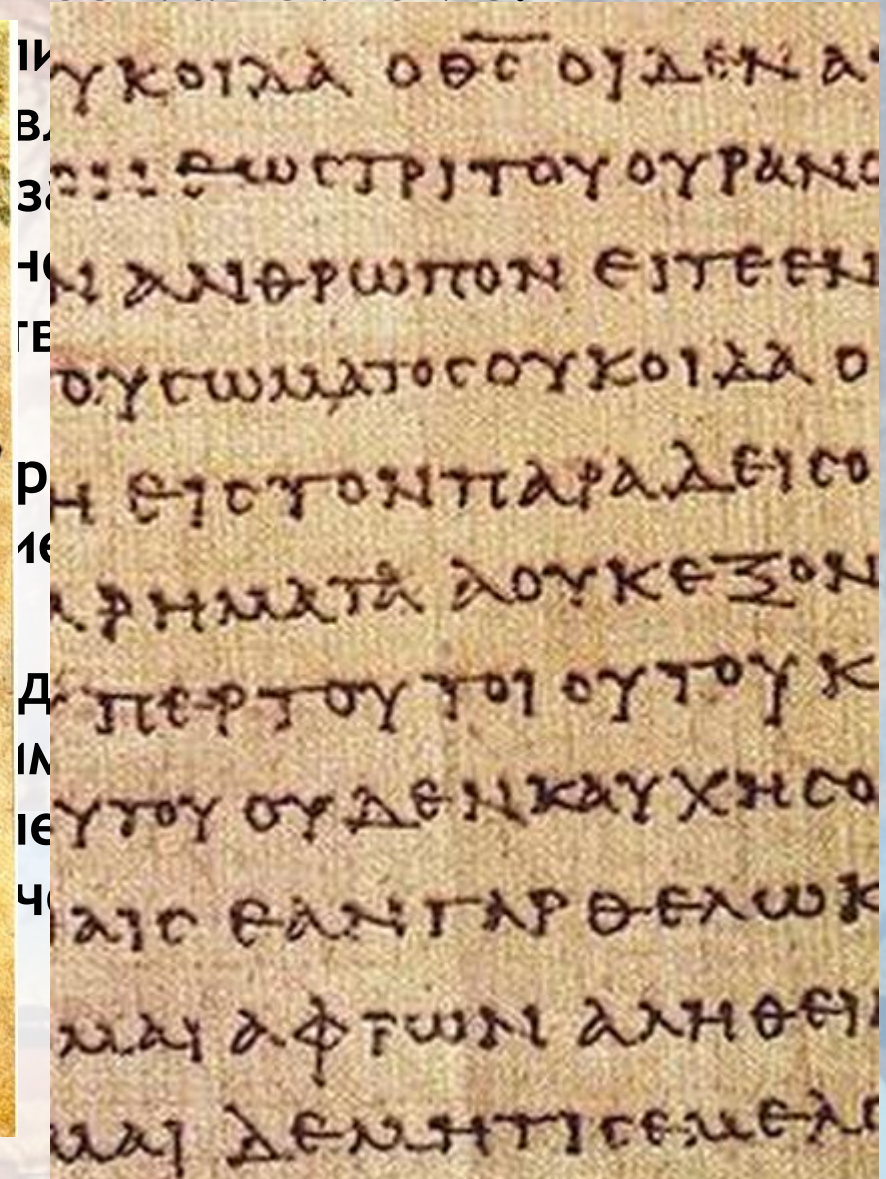 ΥΚΟΙΔΑ Ο Θ̅Ϲ̅ ΟΙΔΕΝ Α
ΕΩϹΤΡΙΤΟΥ ΟΥΡΑΝΟ
Ν ΑΝΘΡΩΠΟΝ ΕΙΤΕΕΝ
ΟΥϹΩΜΑΤΟϹΟΥΚΟΙΔΑ Ο
Η ΕΙϹΤΟΝΠΑΡΑΔΕΙϹΟ
ΑΡΗΜΑΤΑ ΑΟΥΚΕΞΟΝ
ΥΠΕΡΤΟΥ ΤΟΙΟΥΤΟΥ Κ
ΥΤΟΥ ΟΥΔΕΝΚΑΥΧΗϹΟ
ΑΙϹ ΕΑΝ ΓΑΡ ΘΕΛΩΚ
ΜΑΙ ΑΦΡΩΝ ΑΛΗΘΕΙ
ΜΑΙ ΔΕΜΗΤΙϹΕΜΕΛΟ